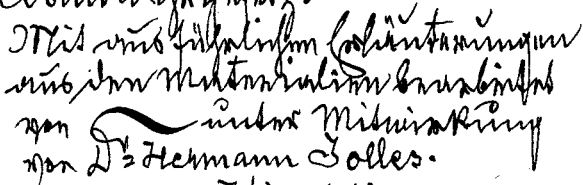 Mit ausführlichen Erläuterungen
aus den Materialien bearbeitet
von unter Mitwirkung
von Dr. Hermann Jolles.